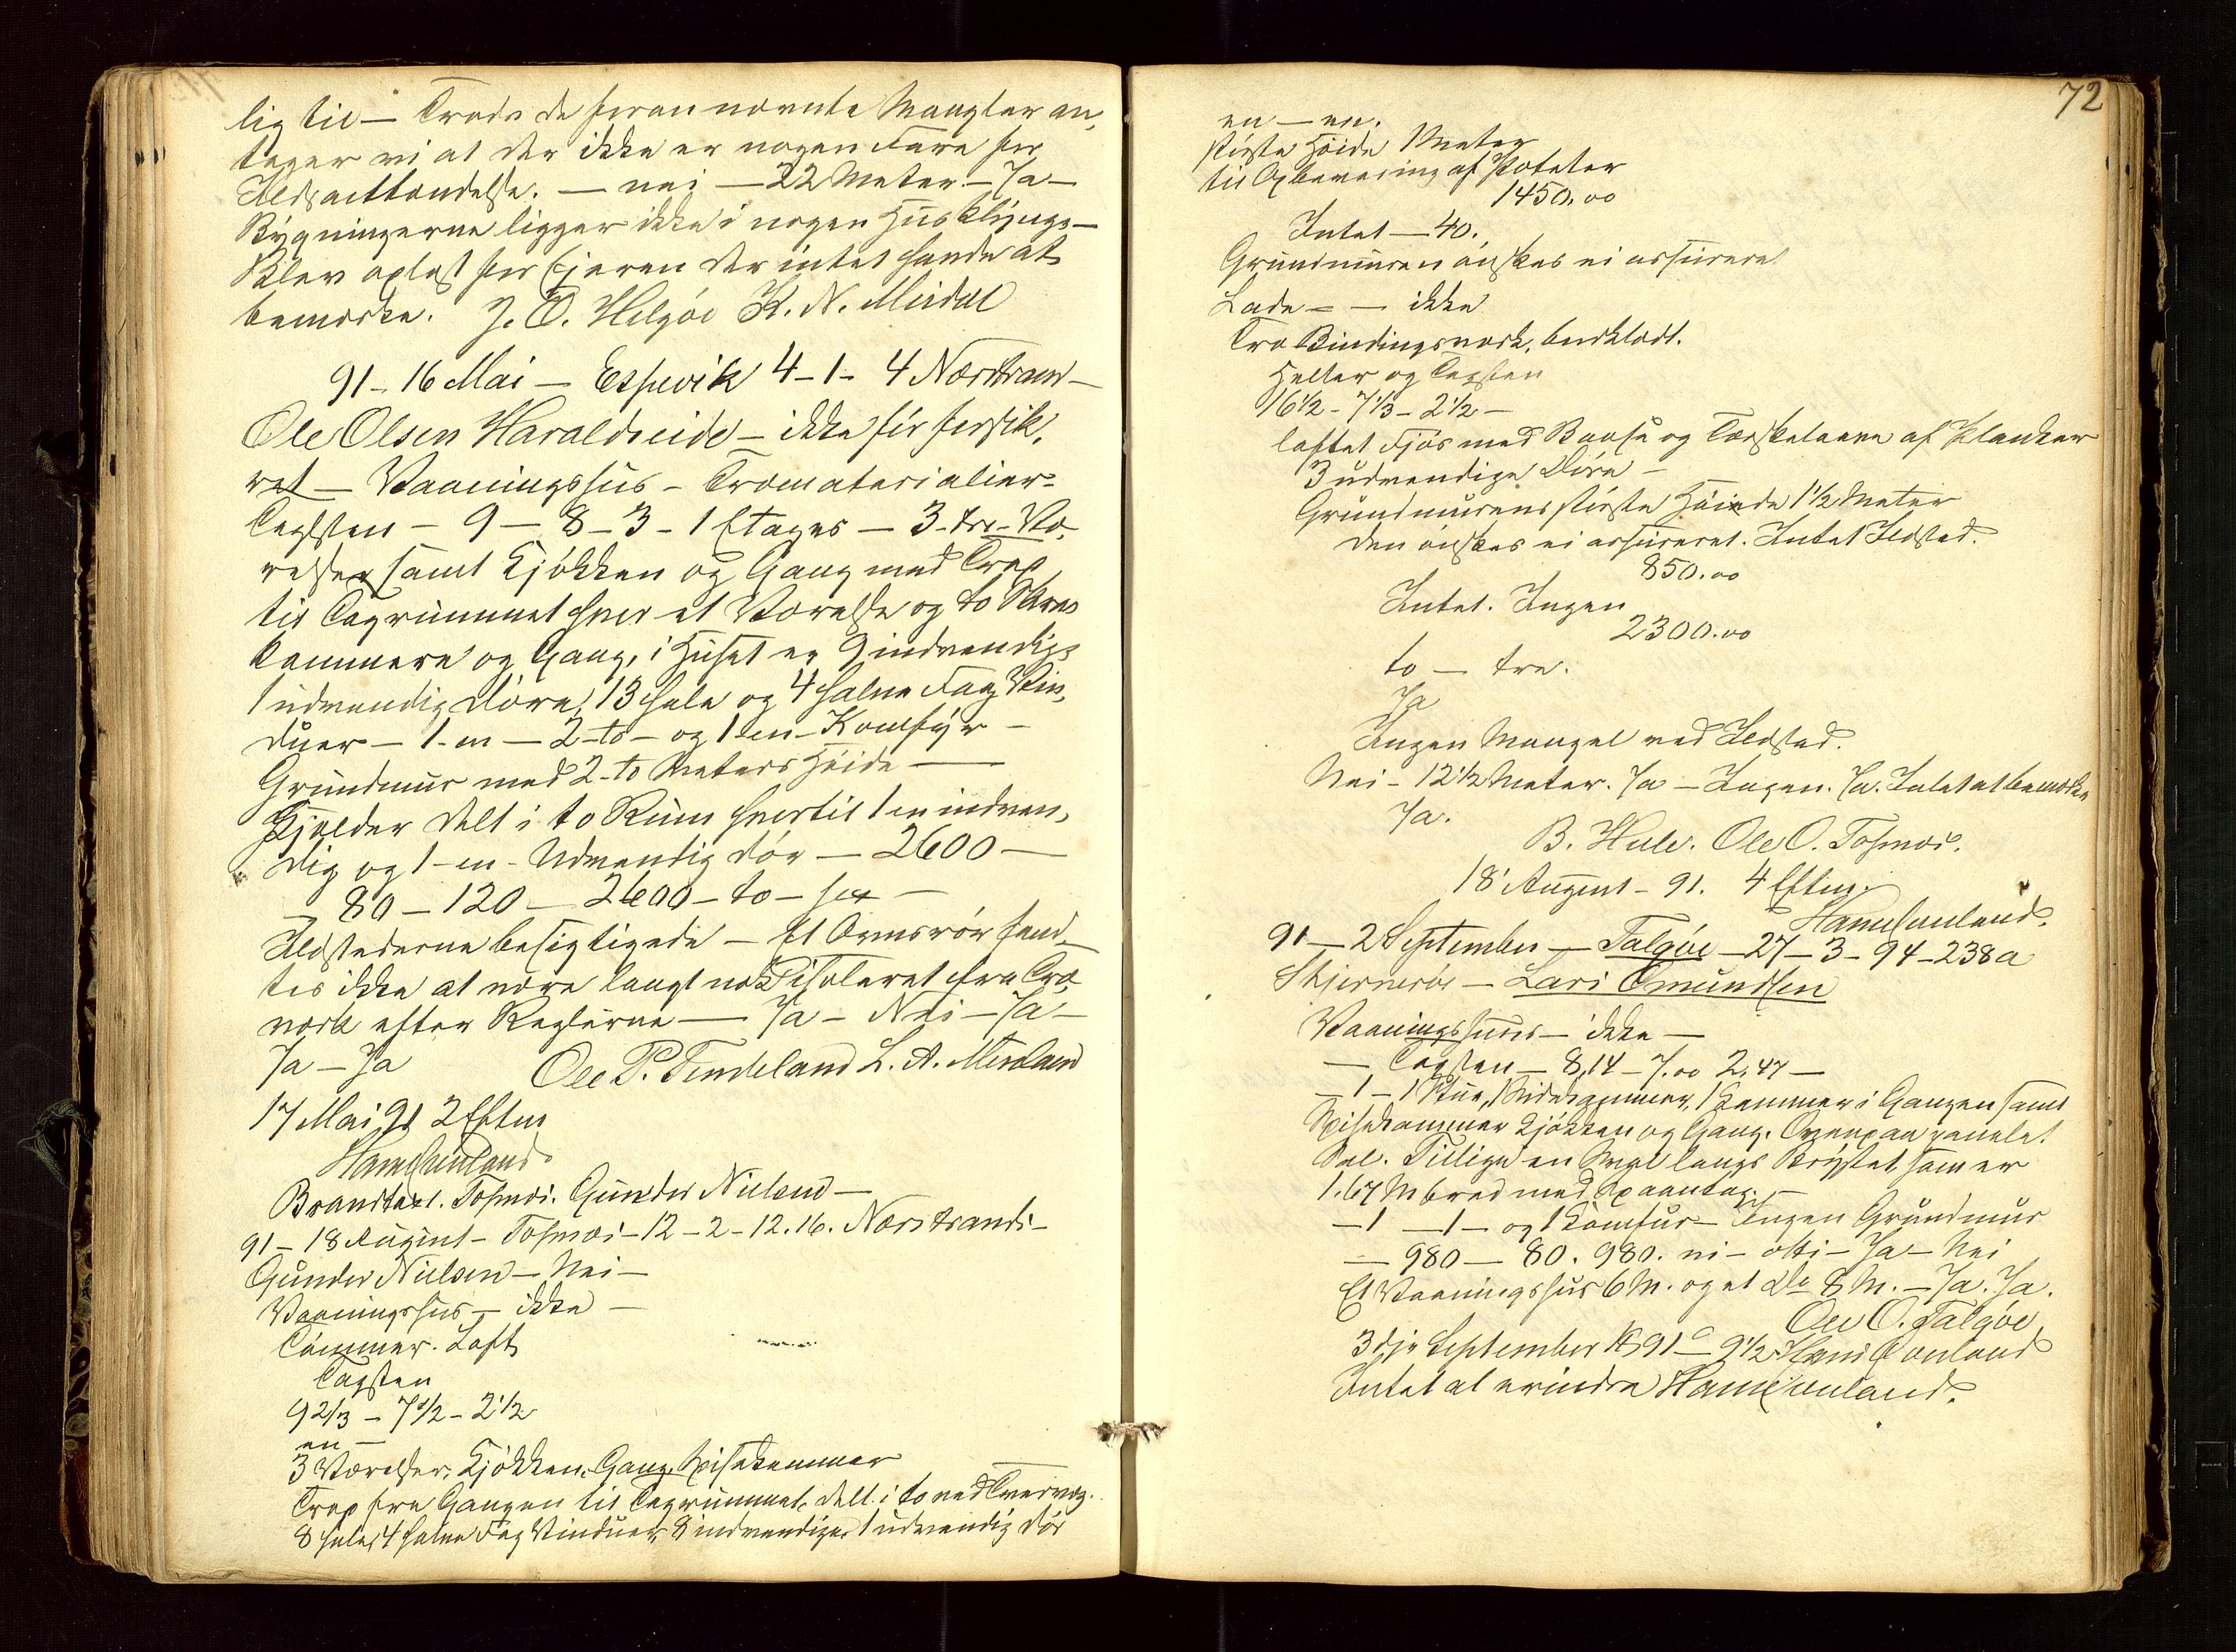 lig til — Trods de foran nævnte Mangler an,
tager vi at der ikke er nogen Fare for
Ildsantændelse. — nei — 22 Meter — Ja —
Bygningerne ligger ikke i nogen Husklynge —
Blev oplæst for Ejeren der intet havde at
bemærke. J. O. Helgöe K. N. Mirdal
91 – 16 Mai – Espevik 4 – 1 – 4 Nærstrand –
Ole Olsen Haraldseide – ikke för forsik,
ret – Vaaningshus – Træmaterialier –
Teglsten – 9 – 8 – 3 – 1 Etages – 3 - tre - Væ,
relser samt Kjøkken og Gang med Trap
til Tagrummet hvor et Værelse og to
Kammere og Gang, i Huset er 9 indvendig
1 udvendig Döre, 13 hele og 4 halve Fag Vin,
duer – 1 - en – 2 - to – og 1 en – Komfyr –
Grundmur med 2 - to Meters Höide —
Kjælder delt i to Rum hvortil 1 en indven,
dig og 1 – en – Udvendig dör – 2600 —
– 80 – 120 – 2600 – to – sex –
Ildstederne besigtigede – Et Ovnsrör fand,
tes ikke at være langt nok isoleret fra Træ,
værk efter Reglerne — Ja – Nei – Ja –
Ja – Ja Ole P. Tendeland L. A. Mæland
17 Mai 91 2 Eftm
Brandtaxt. Tosmoi. Gunder Nielsen —
91 – 18 August – Tosmoi – 12 – 2 – 12.16. Nærstrands –
Gunder Nielsen – Nei –
Vaaningshus – ikke –
Tömmer. Loft
Tagsten
9 2/3 – 7 1/2 – 2 1/2
en –
3 Værelser, Kjøkken, Gang, Spisekammer
Trap fra Gangen til Tagrummet, delt i to ved Tværvæg.
8 hele, 4 halve Fag Vinduer, 8 indvendige, 1 udvendig dör
72
en – en.
störste Höide 1 Meter
til Opbevaring af Poteter
1450.00
Intet – 40.
Grundmuren önskes ei assureret
Lade – – ikke
Træ Bindingsværk, bordklædt.
Heller og Tagsten
16 1/2 – 7 1/3 – 2 1/2 –
loftet Fjös med Baase og Tærskelaave af Planker
3 udvendige Döre –
Grundmurens störste Höide 1 1/2 Meter
den önskes ei assureret. Intet Ildsted.
850.00
Intet. Ingen
2300.00
to – tre.
Ja
Ingen Mangel ved Ildsted.
Nei – 12 1/2 Meter. Ja – Ingen. Ja. Intet at bemærke
Ja.
B. Hule. Ole O. Tosmoi.
18 August – 91. 4 Eftm.
91 – 2 September – Talgöe – 27 – 3 – 94 – 238a
Skjernerö – Lars Omundsen
Vaaningshus – ikke –
– Tagsten – 8,14 – 7.00 2,47 –
– 1 – 1 Stue, 1 Sidekammer, 1 Kammer i Gangen samt
Spisekammer Kjøkken og Gang. Ovenpaa panelet
Sal. Tillige en Sval langs Brystet som er
1.67 M bred med Spaantag. –
– 1 – 1 – og 1 Komfur – Ingen Grundmur
– 980 – 80. 980. ni – otti – Ja – Nei
Et Vaaningshus 6 M. og et Do 8 M. – Ja. Ja.
Ole O. Talgöe
3dje September 1891 – 9 1/2
Intet at erindre